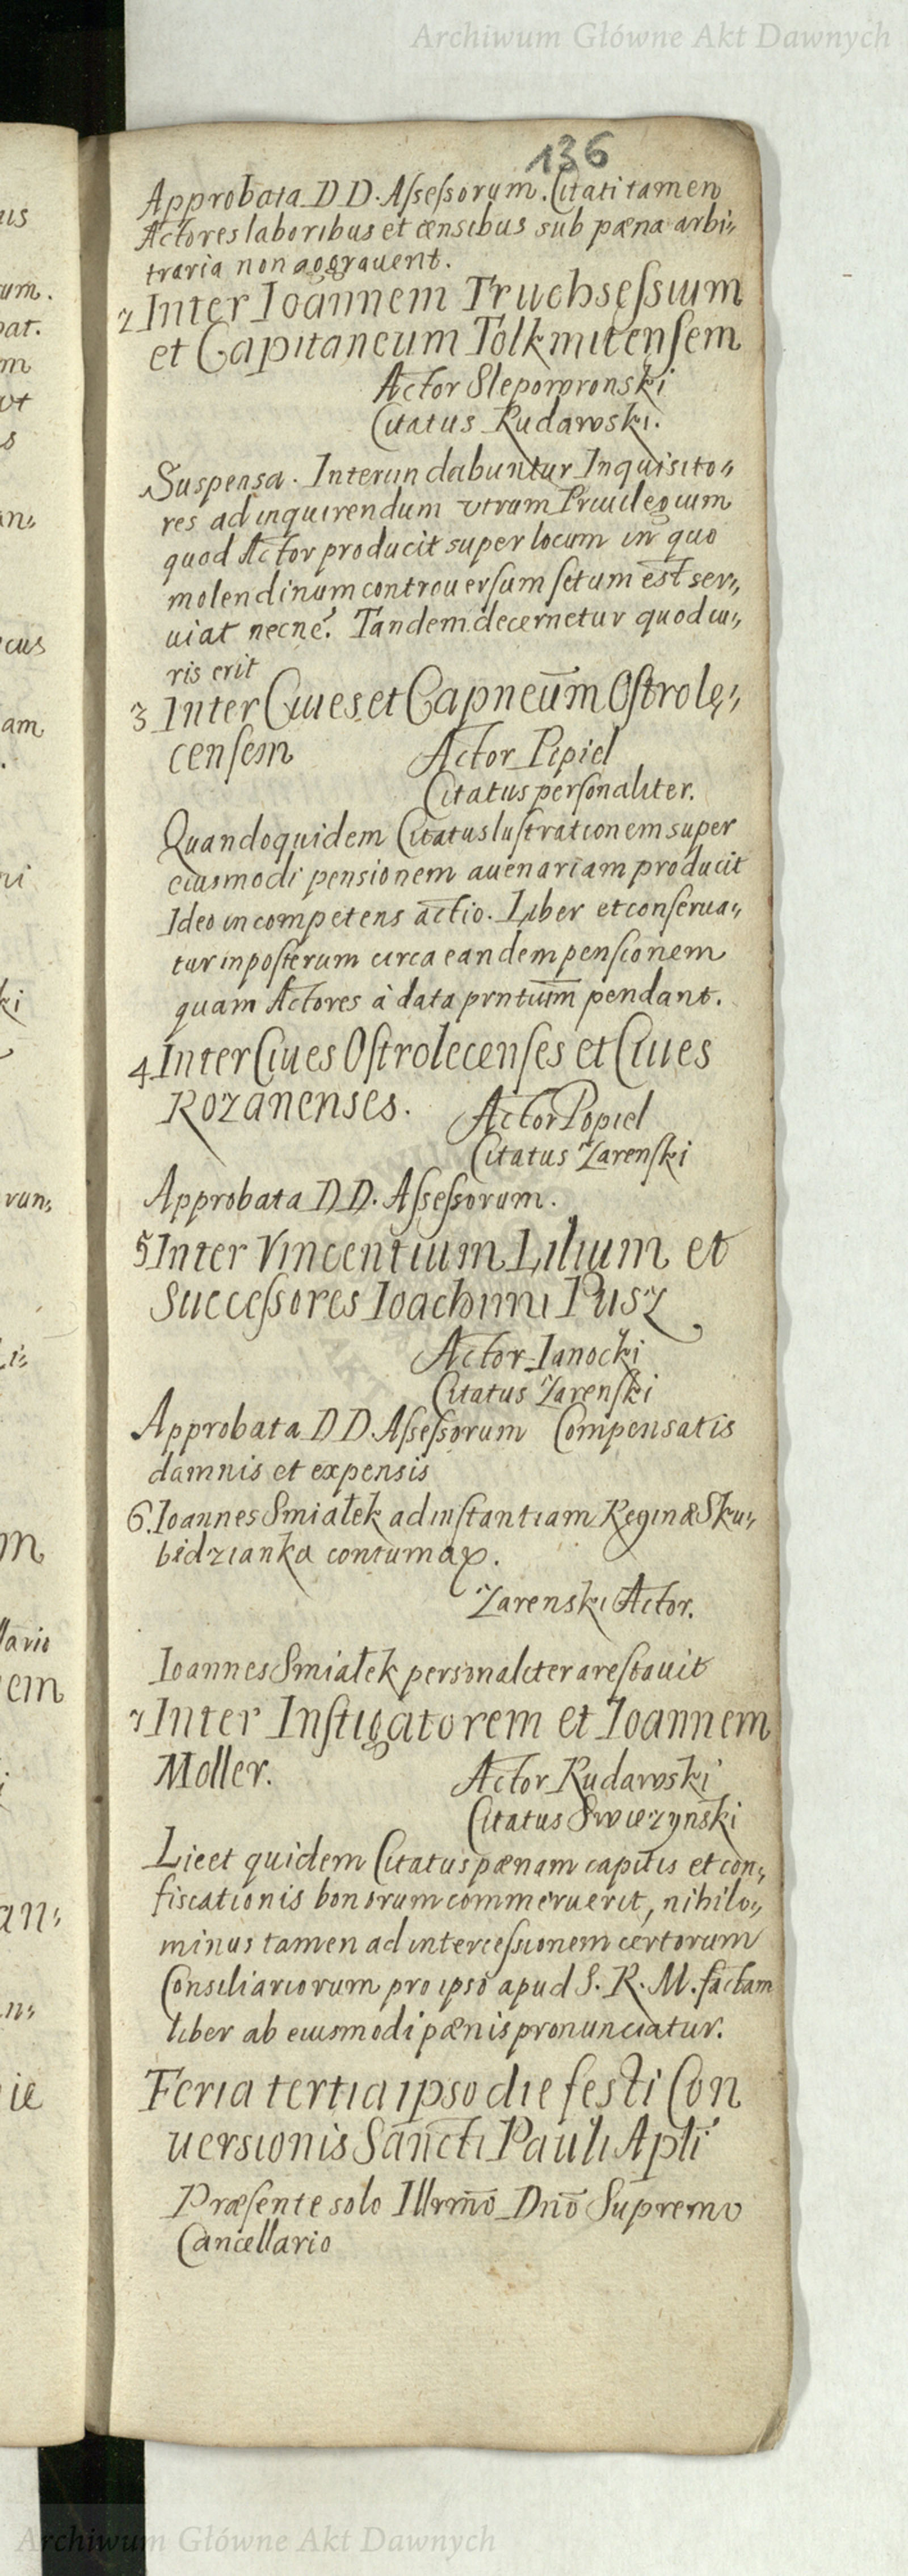 Archiwum Główne Akt Dawnych
136
Approbata D D. Aſseſsorum. Citati tamen
Actores laboribus et censibus sub pæna arbi„
traria non aggrauent.
2 Inter Ioannem Truchseſsium
et Capitaneum Tolkmitenſem
Actor Slepowronski
Citatus Rudawski.
Suspensa. Interim dabuntur Inquisito„
res ad inquirendum vtrum Priuilegium
quod Actor producit super locum in quo
molendinum controuerſum ſitum est ser„
uiat necne? Tandem decernetur quod iu„
ris erit
3 Inter Ciues et Capneūm Oſtrolę„
cenſem
Actor Pipiel
Citatus perſonaliter.
Quandoquidem Citatus luſtrationem super
eiusmodi pensionem auenariam producit
Ideo incompetens actio. Liber et conſerua„
tur in poſterum circa eandem penſionem
quam Actores à data prntium pendant.
4 Inter Ciues Oſtrolecenſes et Ciues
Rozanenses.
Actor Popiel
Citatus Zarenſki
Approbata D D. Aſseſsorum.
5 Inter Vincentium Lilium et
Succeſsores Ioachimi Pusz
Actor Ianocki
Citatus Zarenſki
Approbata D D. Aſseſsorum Compensatis
damnis et expensis
6. Ioannes Smiałek ad inſtantiam Reginæ Sku„
bidzianka contumax.
Zarenski Actor.
Ioannes Smiałek personaliter areſtauit
7 Inter Inſtigatorem et Ioannem
Moller.
Actor Rudawski
Citatus Swiezynski
Licet quidem Citatus pænam capitis et con„
fiscationis bonorum commeruerit, nihilo„
minus tamen ad interceſsionem certorum
Consiliariorum pro ipso apud S. R. M. factam
liber ab eiusmodi pænis pronunciatur.
Feria tertia ipso die festi Con
uersionis Sancti Pauli Apli
Præſente solo Illrmō Dnō Supremo
Cancellario
Archiwum Główne Akt Dawnych